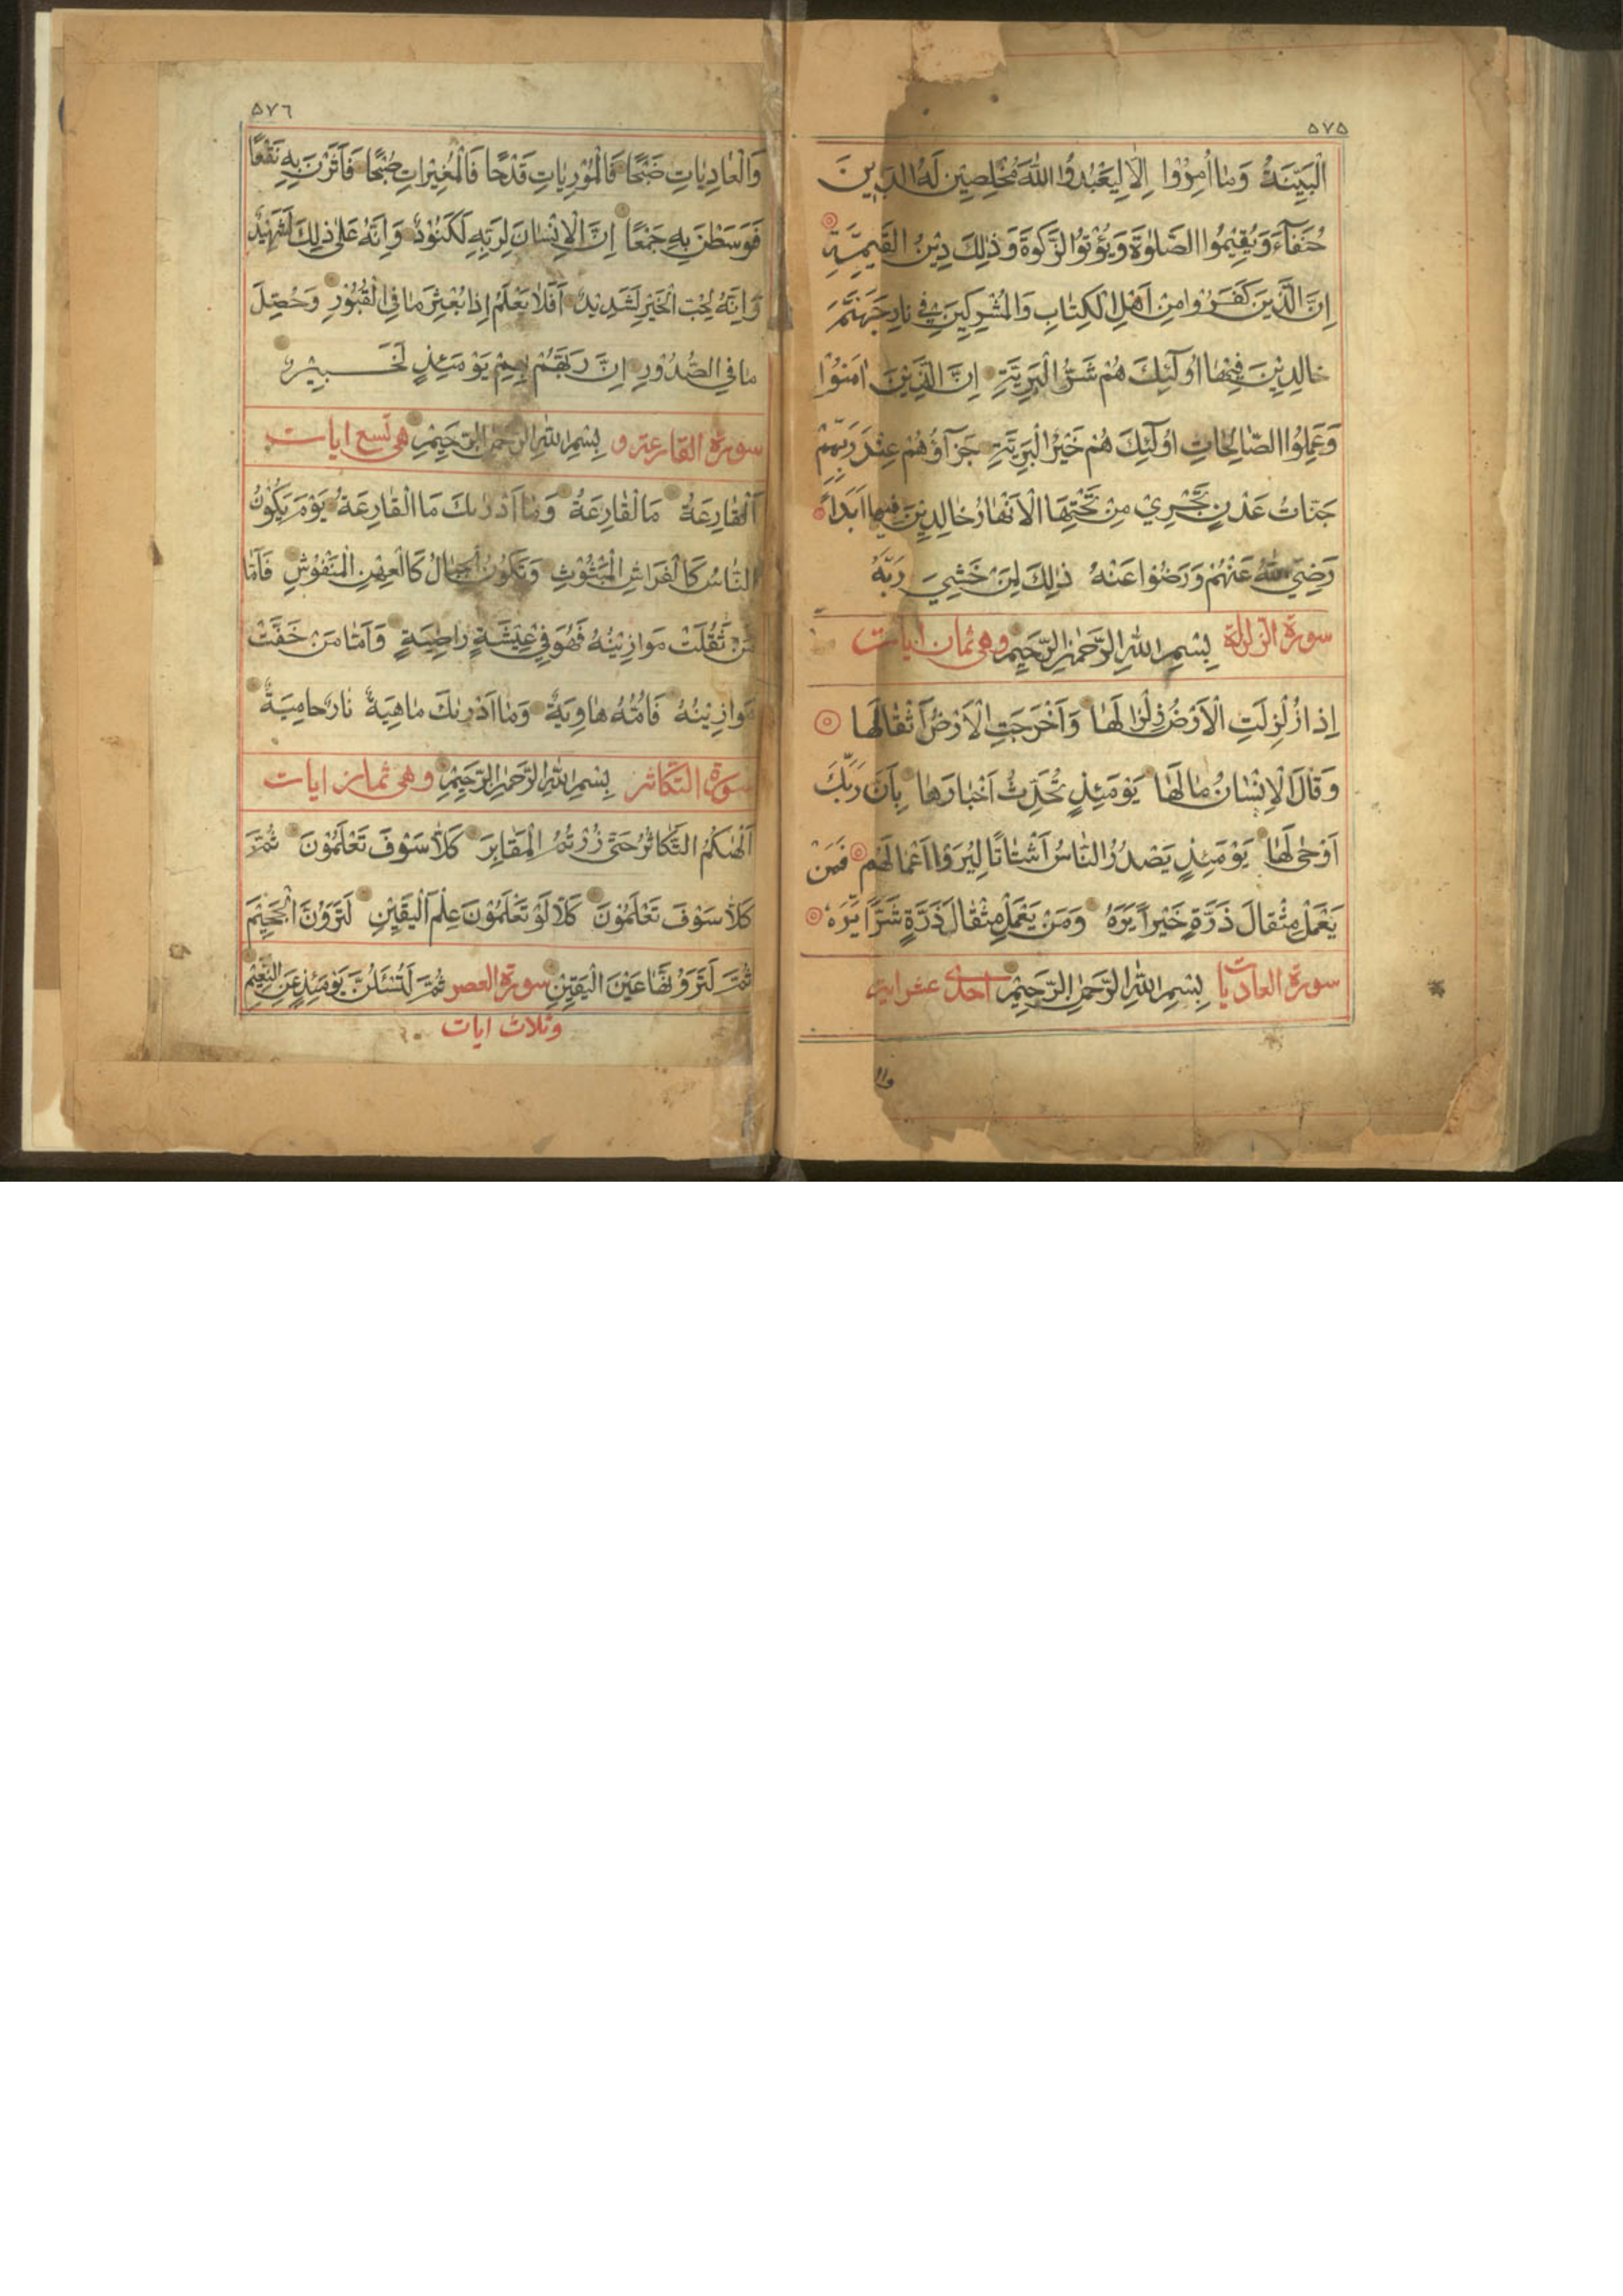 ۵۷۵
الْبَيِّنَةُ وَمٰا اُمِرُوْا اِلَّا لِيَعْبُدُوا اللّٰهَ مُخْلِصِيْنَ لَهُ الدِّيْنَ
حُنَفٰآءَ وَيُقِيْمُوا الصَّلٰوةَ وَيُؤْتُوا الزَّكٰوةَ وَذٰلِكَ دِيْنُ الْقَيِّمَةِ
اِنَّ الَّذِيْنَ كَفَرُوْا مِنْ اَهْلِ الْكِتٰابِ وَالْمُشْرِكِيْنَ فِي نٰارِ جَهَنَّمَ
خٰالِدِيْنَ فِيْهٰا اُولٰٓئِكَ هُمْ شَرُّ الْبَرِيَّةِ اِنَّ الَّذِيْنَ اٰمَنُوْا
وَعَمِلُوا الصّٰالِحٰاتِ اُولٰٓئِكَ هُمْ خَيْرُ الْبَرِيَّةِ جَزٰآؤُهُمْ عِنْدَ رَبِّهِمْ
جَنّٰاتُ عَدْنٍ تَجْرِيْ مِنْ تَحْتِهَا الْاَنْهٰارُ خٰالِدِيْنَ فِيهٰا اَبَداً
رَضِيَ اللّٰهُ عَنْهُمْ وَرَضُوْا عَنْهُ ذٰلِكَ لِمَنْ خَشِيَ رَبَّهُ
سورة الزلزلة بِسْمِ اللّٰهِ الرَّحْمٰنِ الرَّحِيْمِ وهى ثمان ايات
اِذٰا زُلْزِلَتِ الْاَرْضُ زِلْزٰالَهٰا وَاَخْرَجَتِ الْاَرْضُ اَثْقٰالَهٰا
وَقٰالَ الْاِنْسٰانُ مٰا لَهٰا يَوْمَئِذٍ تُحَدِّثُ اَخْبٰارَهٰا بِاَنَّ رَبَّكَ
اَوْحٰى لَهٰا يَوْمَئِذٍ يَصْدُرُ النّٰاسُ اَشْتٰاتًا لِيُرَوْا اَعْمٰالَهُمْ فَمَنْ
يَعْمَلْ مِثْقٰالَ ذَرَّةٍ خَيْراً يَرَهُ وَمَنْ يَعْمَلْ مِثْقٰالَ ذَرَّةٍ شَرًّا يَرَهُ
سورة العاديات بِسْمِ اللّٰهِ الرَّحْمٰنِ الرَّحِيْمِ احدى عشر اية
۵۷٦
وَالْعٰادِيٰاتِ ضَبْحًا فَالْمُوْرِيٰاتِ قَدْحًا فَالْمُغِيْرٰاتِ صُبْحًا فَاَثَرْنَ بِهِ نَقْعًا
فَوَسَطْنَ بِهِ جَمْعًا اِنَّ الْاِنْسٰانَ لِرَبِّهِ لَكَنُوْدٌ وَاِنَّهُ عَلٰى ذٰلِكَ لَشَهِيْدٌ
وَاِنَّهُ لِحُبِّ الْخَيْرِ لَشَدِيْدٌ اَفَلٰا يَعْلَمُ اِذٰا بُعْثِرَ مٰا فِي الْقُبُوْرِ وَحُصِّلَ
مٰا فِي الصُّدُوْرِ اِنَّ رَبَّهُمْ بِهِمْ يَوْمَئِذٍ لَخَبِيْرٌ
سورة القارعة و بِسْمِ اللّٰهِ الرَّحْمٰنِ الرَّحِيْمِ هى تسع ايات
اَلْقٰارِعَةُ مَا الْقٰارِعَةُ وَمٰا اَدْرٰىكَ مَا الْقٰارِعَةُ يَوْمَ يَكُوْنُ
النّٰاسُ كَالْفَرٰاشِ الْمَبْثُوْثِ وَتَكُوْنُ الْجِبٰالُ كَالْعِهْنِ الْمَنْفُوْشِ فَاَمّٰا
مَنْ ثَقُلَتْ مَوٰازِيْنُهُ فَهُوَ فِيْ عِيْشَةٍ رٰاضِيَةٍ وَاَمّٰا مَنْ خَفَّتْ
مَوٰازِيْنُهُ فَاُمُّهُ هٰاوِيَةٌ وَمٰا اَدْرٰىكَ مٰا هِيَةْ نٰارٌ حٰامِيَةٌ
سورة التكاثر بِسْمِ اللّٰهِ الرَّحْمٰنِ الرَّحِيْمِ وهى ثمان ايات
اَلْهٰىكُمُ التَّكٰاثُرُ حَتّٰى زُرْتُمُ الْمَقٰابِرَ كَلّٰا سَوْفَ تَعْلَمُوْنَ ثُمَّ
كَلّٰا سَوْفَ تَعْلَمُوْنَ كَلّٰا لَوْ تَعْلَمُوْنَ عِلْمَ الْيَقِيْنِ لَتَرَوُنَّ الْجَحِيْمَ
ثُمَّ لَتَرَوُنَّهٰا عَيْنَ الْيَقِيْنِ ثُمَّ لَتُسْئَلُنَّ يَوْمَئِذٍ عَنِ النَّعِيْمِ سورة العصر
وثلاث ايات